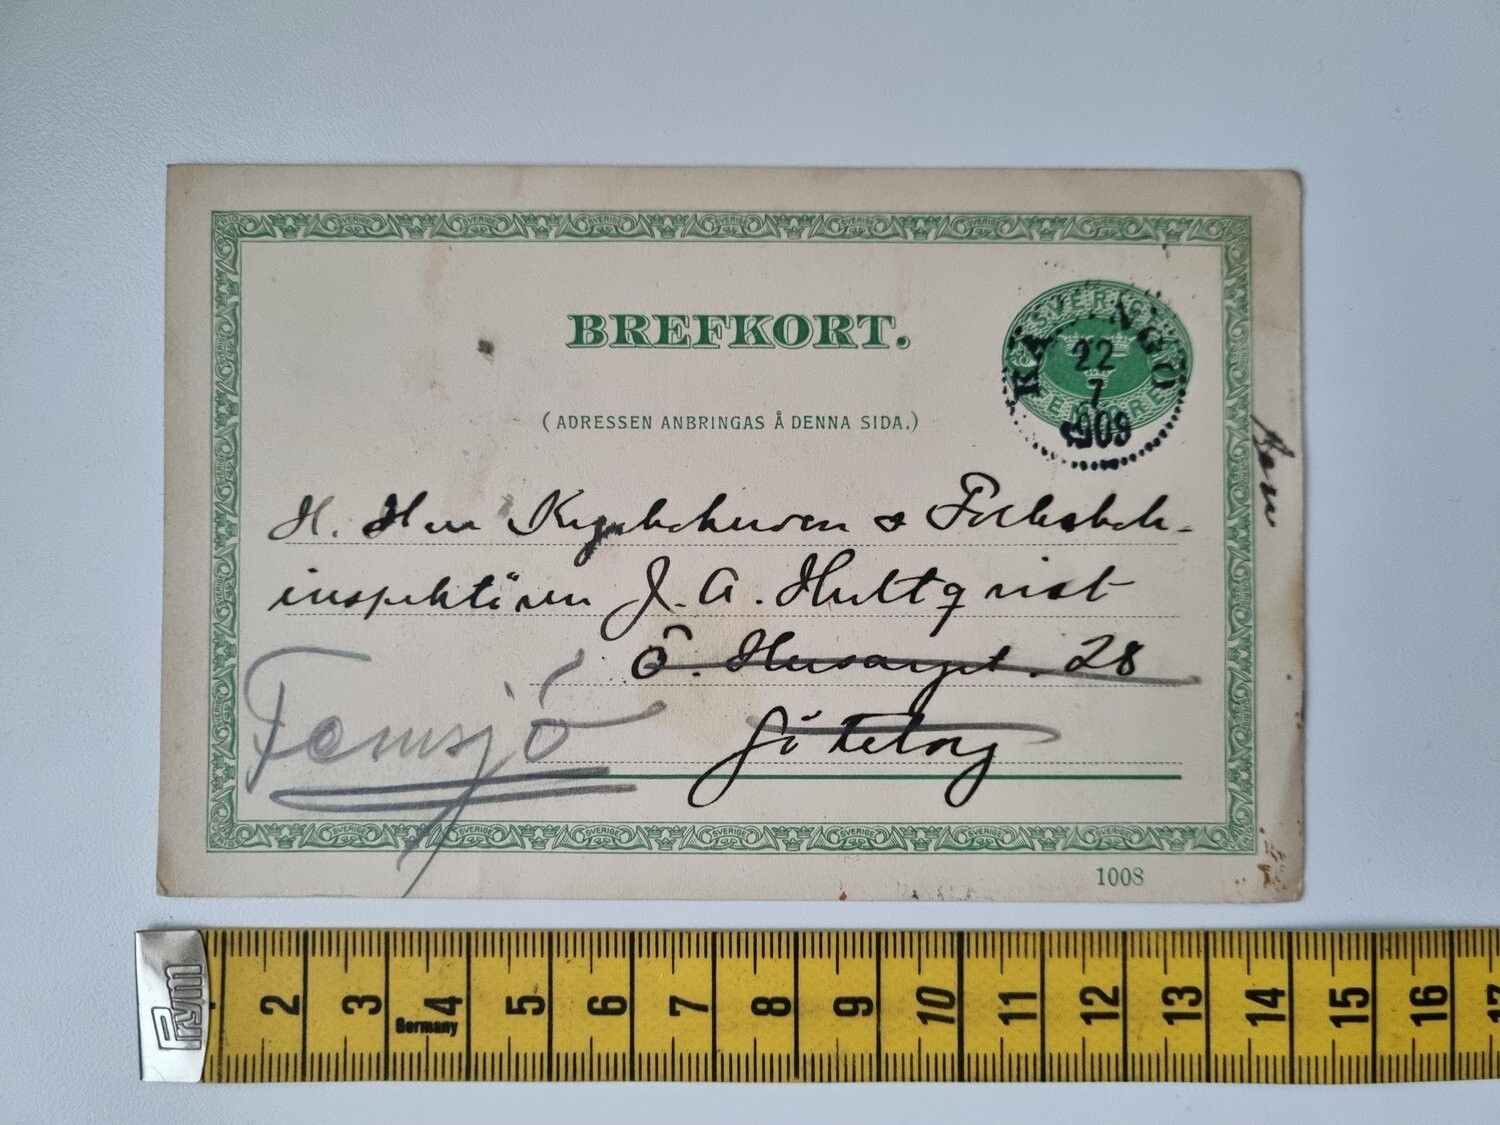 BREFKORT.
(ADRESSEN ANBRINGAS Å DENNA SIDA.)
SVERIGE
FEM ÖRE
KÄRINGÖ
22
7
1908
H. Herr Kyrkoherden & Folkskole-
inspektören J. A. Hultqvist
Ö. Husargat. 28
Göteborg
Femsjö
1008
Prym
2 3 4 5 6 7 8 9 10 11 12 13 14 15 16 17
Germany